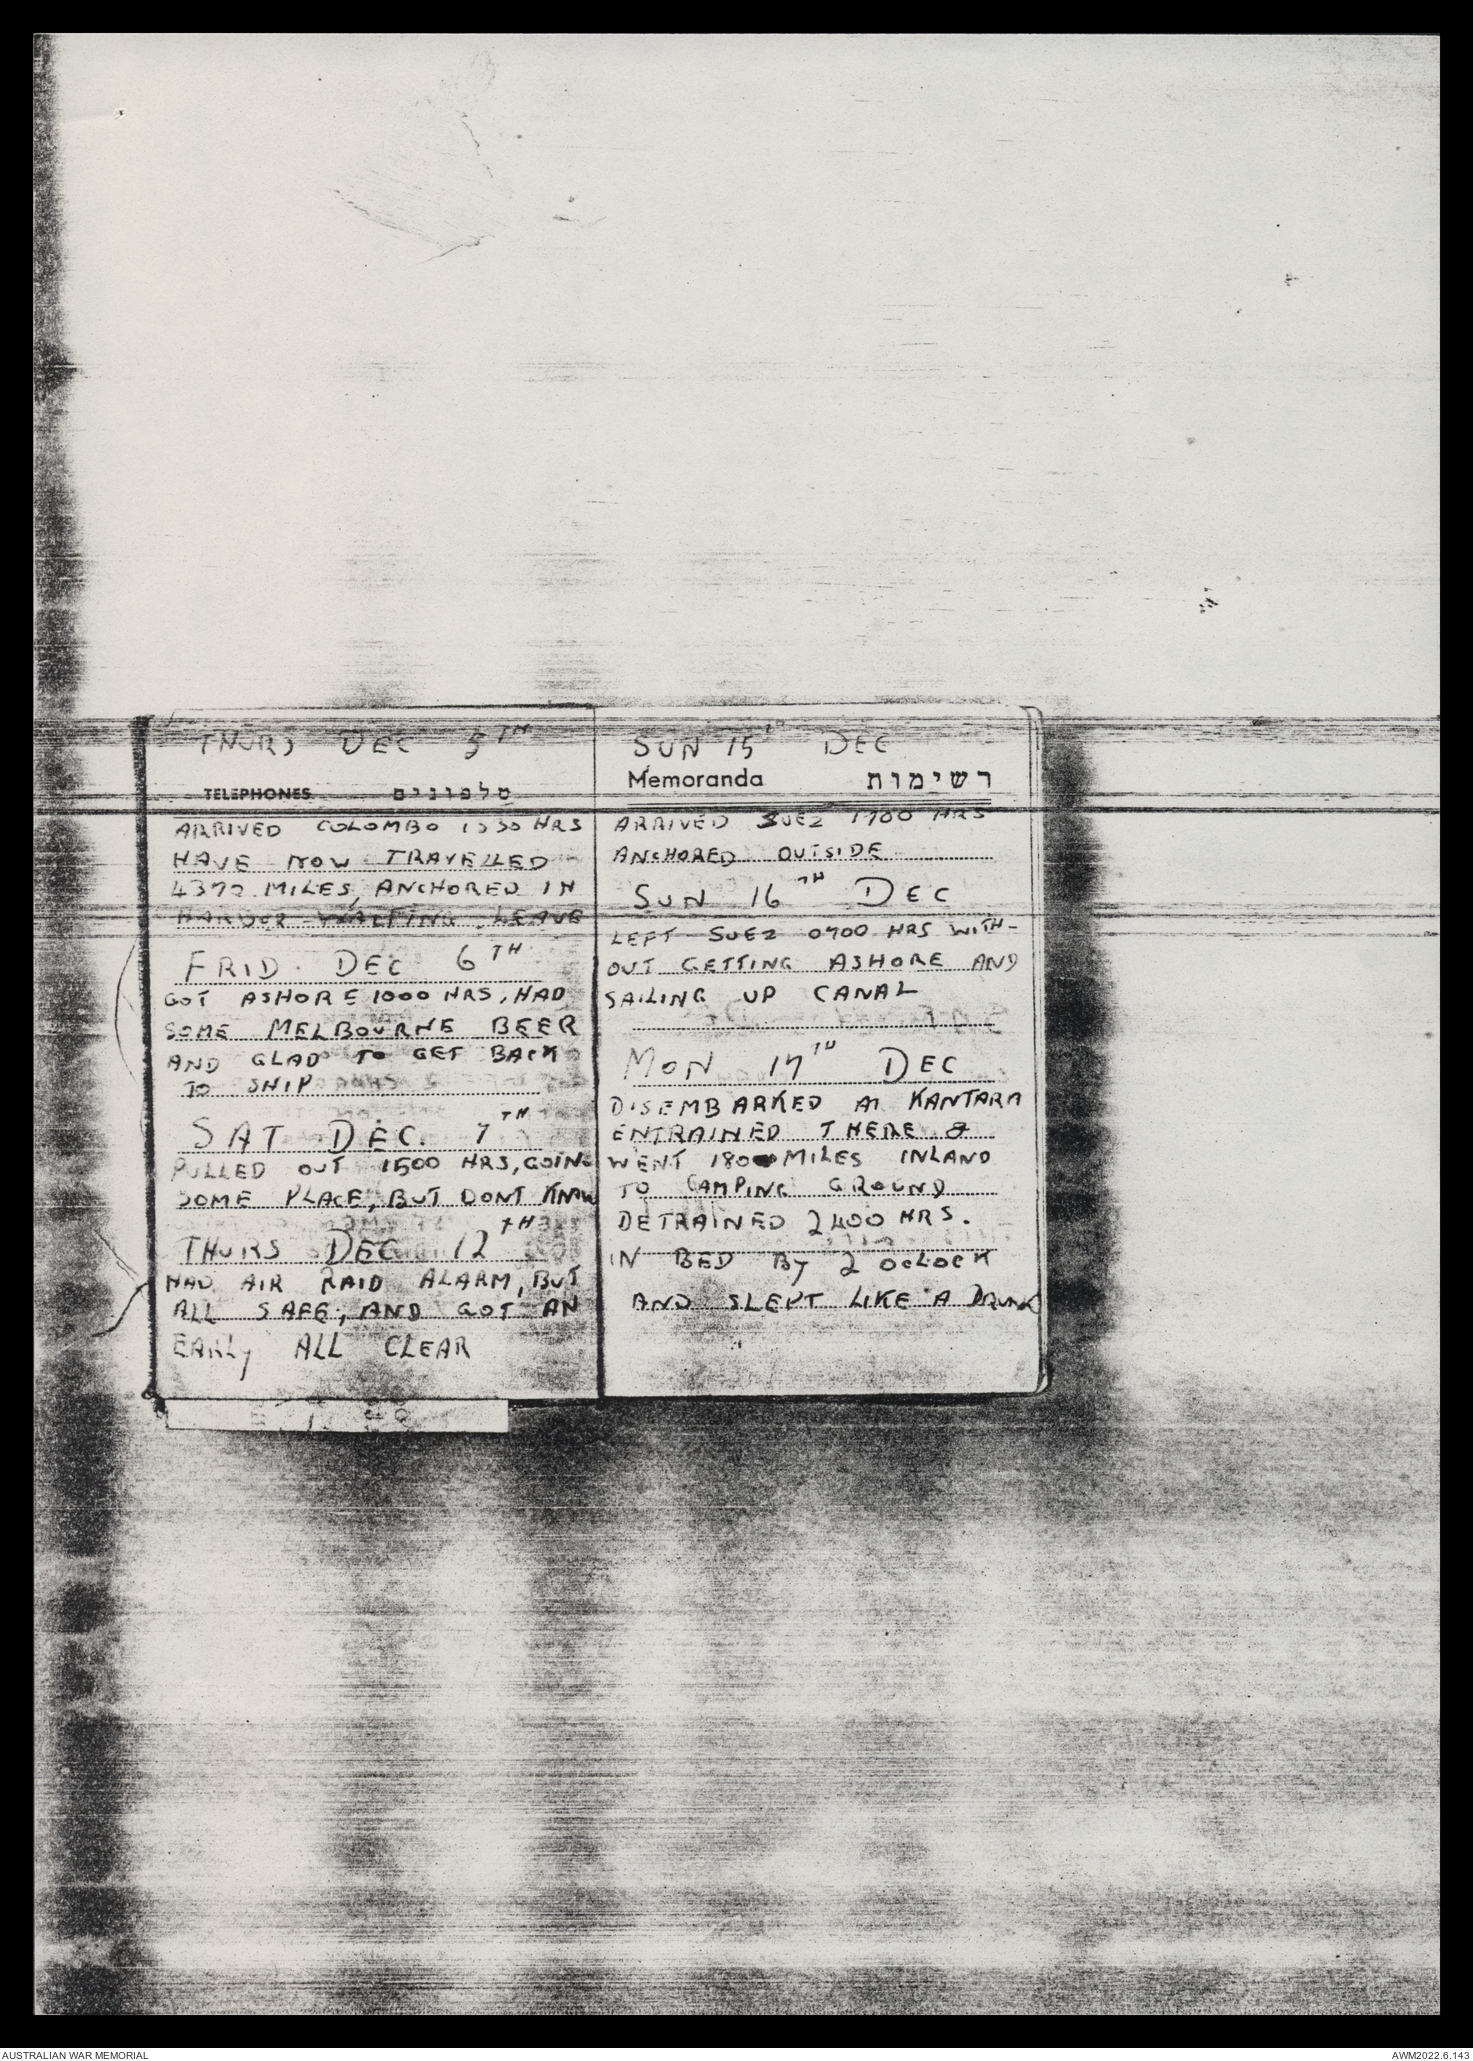 THURS DEC 5TH
TELEPHONES טלפונים
ARRIVED COLOMBO 1530 HRS
HAVE NOW TRAVELLED
4372 MILES, ANCHORED IN
HARBOR WAITING LEAVE
FRID. DEC 6TH
GOT ASHORE 1000 HRS, HAD
SOME MELBOURNE BEER
AND GLAD TO GET BACK
TO SHIP
SAT DEC. 7TH
PULLED OUT 1500 HRS, GOING
SOME PLACE, BUT DONT KNOW
THURS DEC 12TH
HAD AIR RAID ALARM, BUT
ALL SAFE, AND GOT AN
EARLY ALL CLEAR
SUN 15TH DEC
Memoranda רשימות
ARRIVED SUEZ 1700 HRS
ANCHORED OUTSIDE
SUN 16TH DEC
LEFT SUEZ 0700 HRS WITH-
OUT GETTING ASHORE AND
SAILING UP CANAL
MON 17TH DEC
DISEMBARKED AT KANTARA
ENTRAINED THERE &
WENT 180 MILES INLAND
TO CAMPING GROUND
DETRAINED 2400 HRS.
IN BED BY 2 OCLOCK
AND SLEPT LIKE A DRUNK
AUSTRALIAN WAR MEMORIAL
AWM2022.6.143